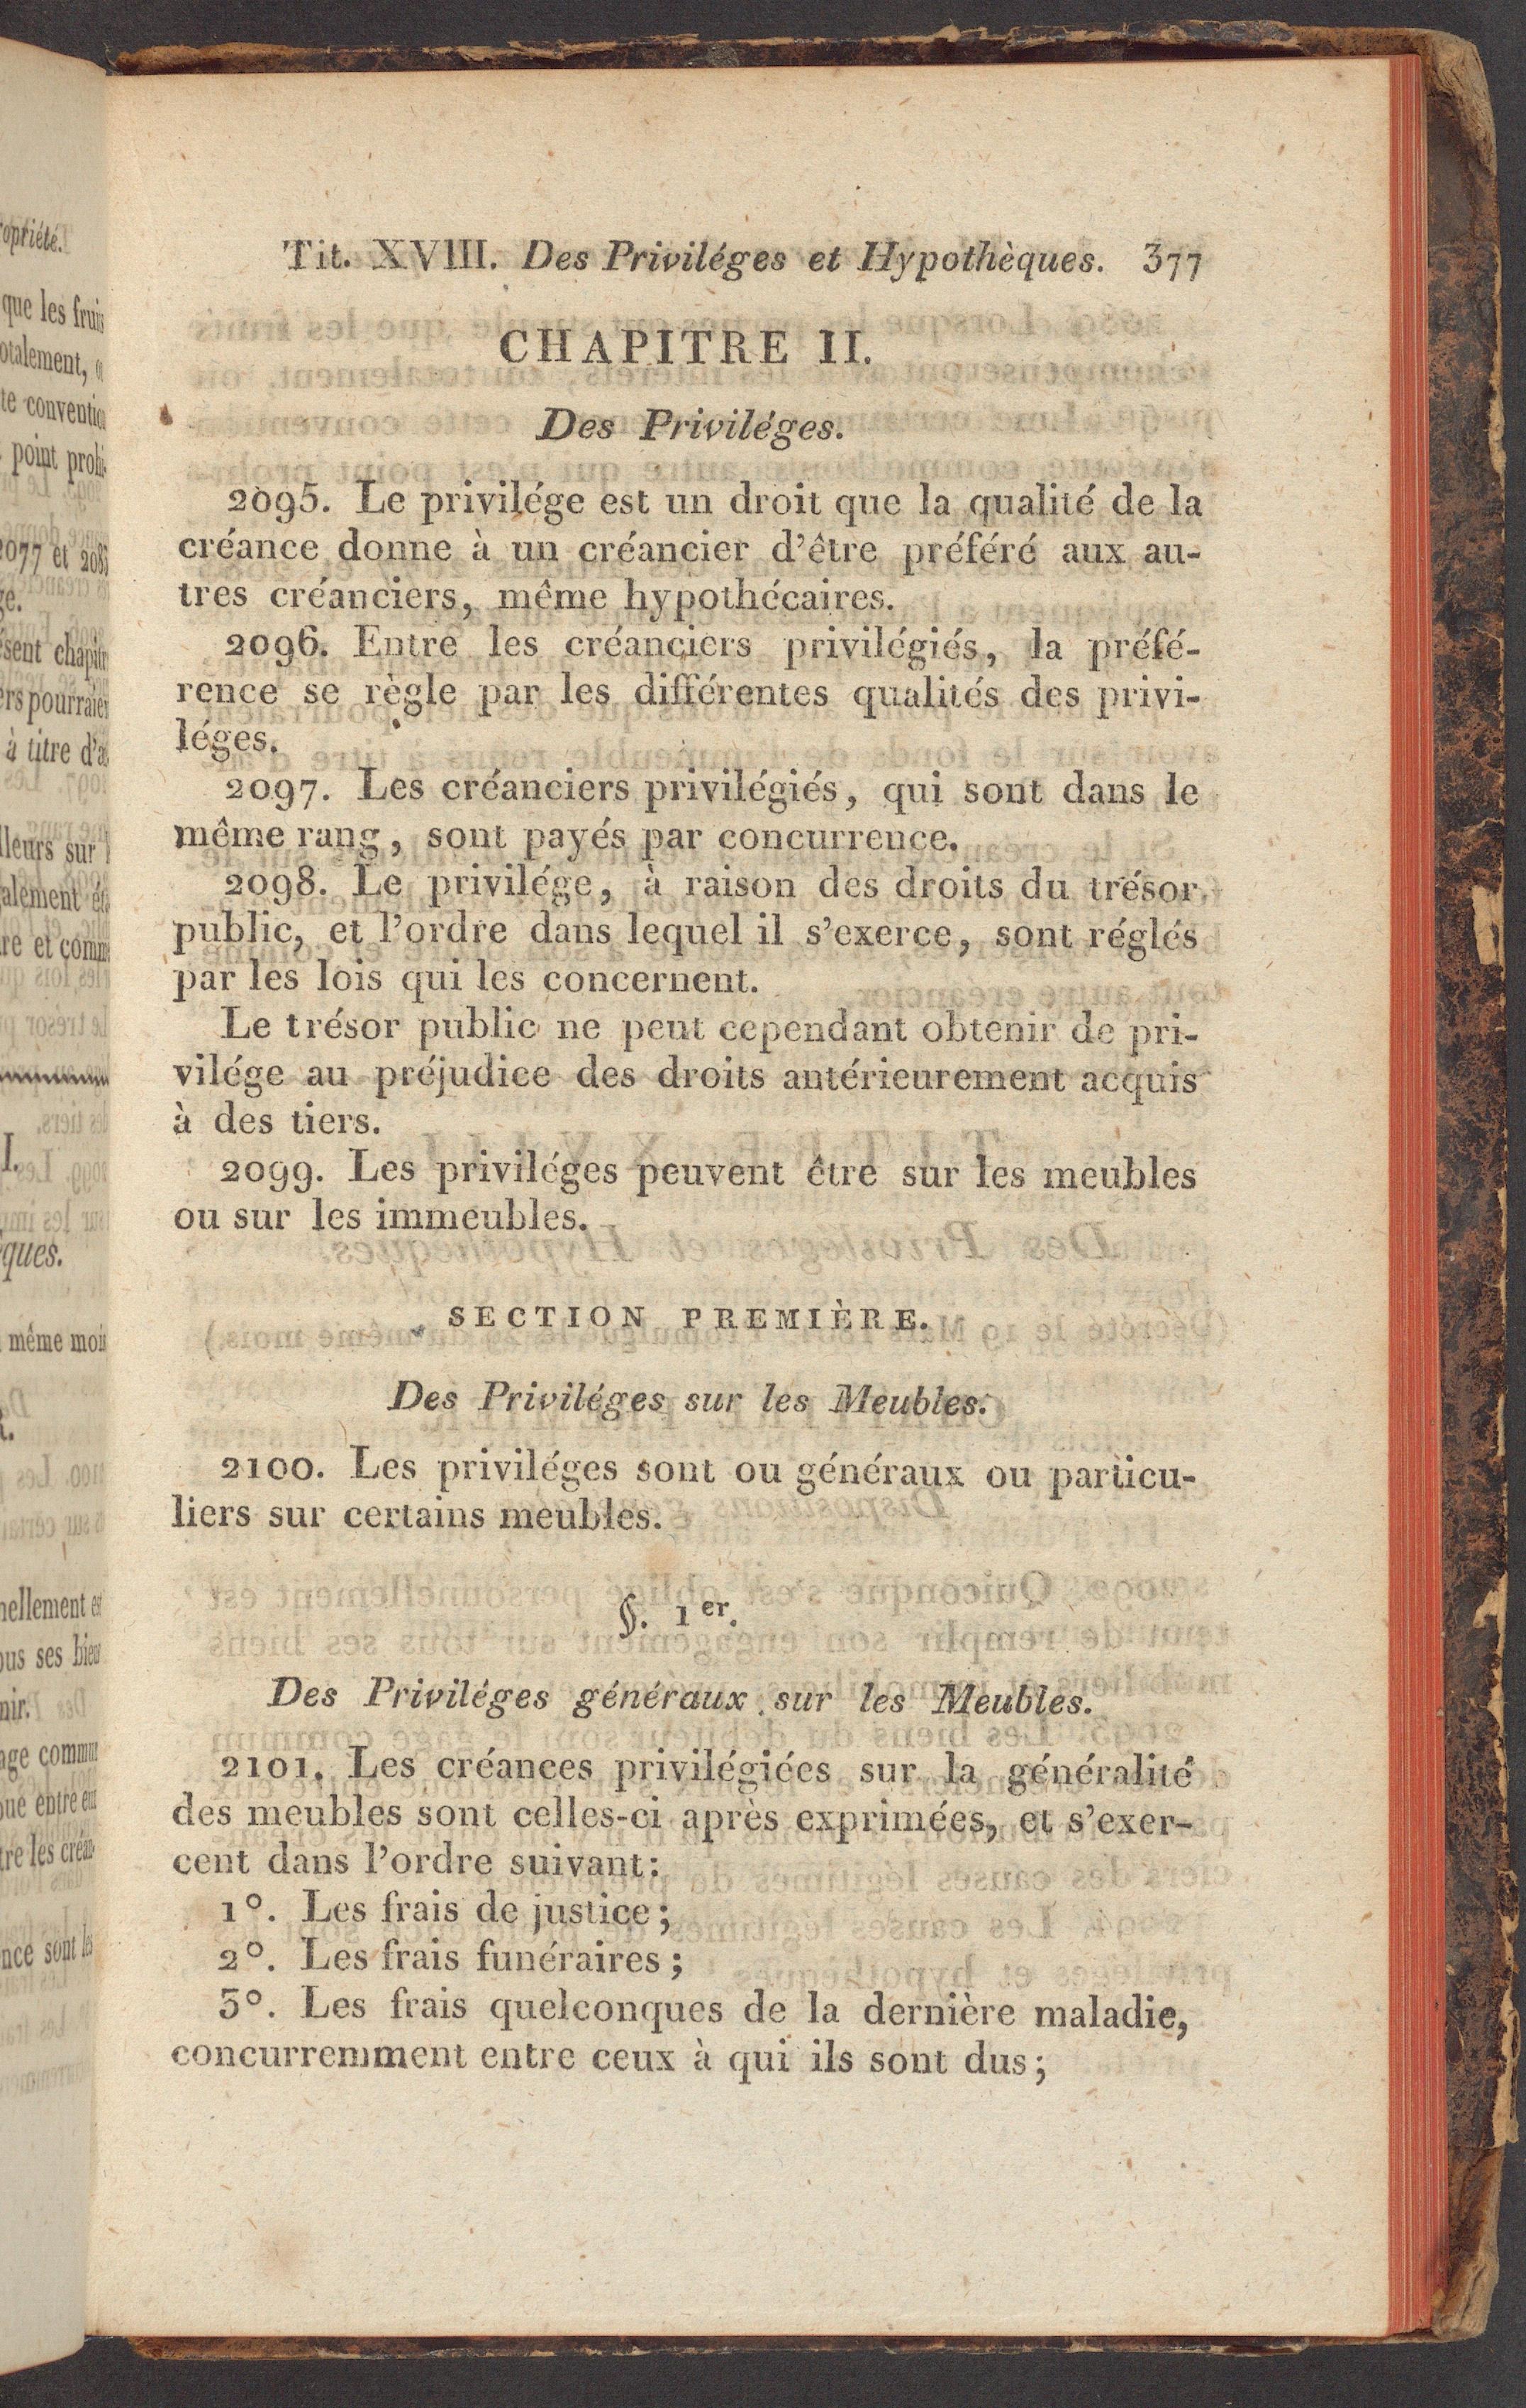 Tit. XVIII. Des Priviléges et Hypothèques. 377
CHAPITRE II.
Des Priviléges.
2095. Le privilége est un droit que la qualité de la
créance donne à un créancier d'être préféré aux au-
tres créanciers, même hypothécaires.
2096. Entre les créanciers privilégiés, la préfé-
rence se règle par les différentes qualités des privi-
léges.
2097. Les créanciers privilégiés, qui sont dans le
même rang, sont payés par concurrence.
2098. Le privilége, à raison des droits du trésor
public, et l'ordre dans lequel il s'exerce, sont réglés
par les lois qui les concernent.
Le trésor public ne peut cependant obtenir de pri-
vilége au préjudice des droits antérieurement acquis
à des tiers.
2099. Les priviléges peuvent être sur les meubles
ou sur les immeubles.
SECTION PREMIÈRE.
Des Priviléges sur les Meubles.
2100. Les priviléges sont ou généraux ou particu-
liers sur certains meubles.
§. 1er.
Des Priviléges généraux sur les Meubles.
2101. Les créances privilégiées sur la généralité
des meubles sont celles-ci après exprimées, et s'exer-
cent dans l'ordre suivant:
1°. Les frais de justice;
2°. Les frais funéraires;
3°. Les frais quelconques de la dernière maladie,
concurremment entre ceux à qui ils sont dus;